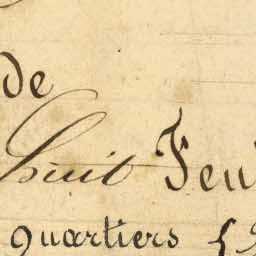 de
huit Feu
quartiers